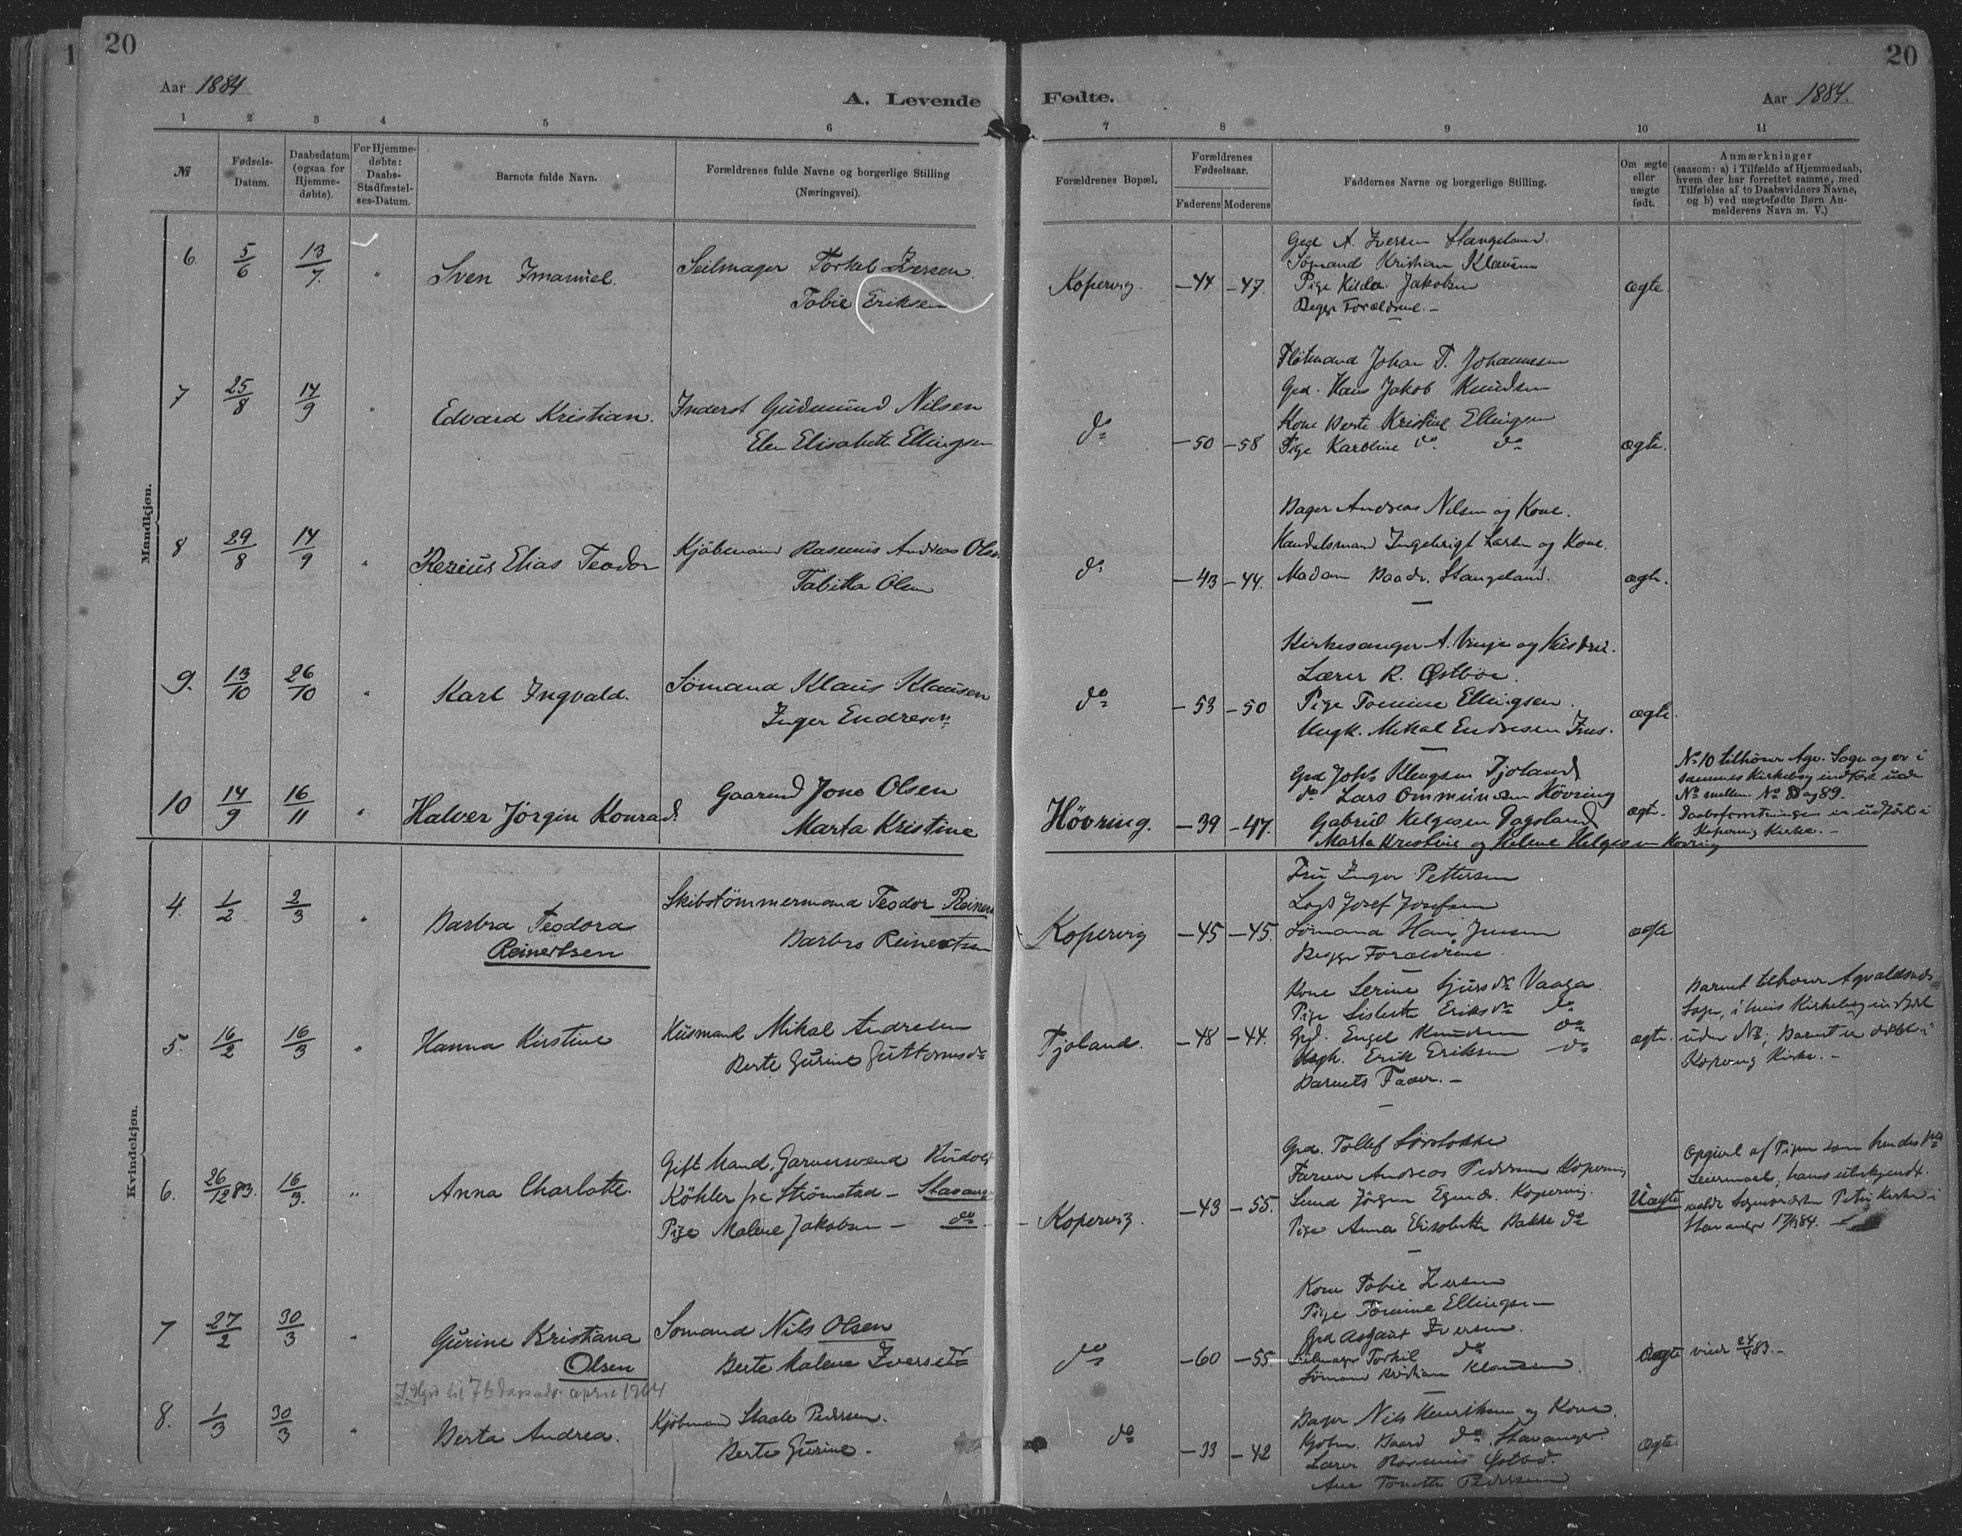 20
20
Aar 1884
A. Levende Fødte.
Aar 1884.
1 2 3 4 5 6 7 8 9 10 11
№
Fødsels-Datum.
Daabsdatum (ogsaa for Hjemmedøbte).
For Hjemmedøbte: Daabs-Stadfæstelses-Datum.
Barnets fulde Navn.
Forældrenes fulde Navne og borgerlige Stilling (Næringsvei).
Forældrenes Bopæl.
Forældrenes Fødselsaar.
Faderens Moderens
Faddernes Navne og borgerlige Stilling.
Om ægte eller uægte født.
Anmærkninger
(saasom: a) i Tilfælde af Hjemmedaab,
hvem der har forrettet samme, med
Tilføielse af to Daabsvidners Navne,
og b) ved uægtefødte Børn Anmelderens Navn m. V.)
Mandkjøn.
6 5/6 13/7 "
Sven Imanuel.
Seilmager Torkel Iversen.
Tobie Eriksen
Kopervig. -44 -47.
Grd A. Iversen Stangeland.
Sømand Kristian Klausen
Pige Hilda Jakobsen
Begge Forældrene.-
ægte.
7 25/8 14/9 "
Edvard Kristian.
Inderst Gudmund Nilsen
Elen Elisabeth Ellingsen
do -50 -58
Johan T. Johannessen
Grd. Hans Jakob Knudsen
Kone Berte Kristine Ellingsen
Pige Karoline do. do
ægte.
8 29/8 14/9 "
Resius Elias Teodor
Kjøbmand Rasmus Andreas Olsen
Tabitha Olsen
do -43 -44.
Bager Andreas Nilsen og Kone.
Handelsmand Ingebrigt Larsen og Kone.
Madam Baade. Stangeland.
ægte.
9. 13/10 26/10 "
Karl Ingvald.
Sømand Klaus Klausen
Inger Endresen
do -53 -50
Kirkesanger A. Vinje og Hustru.
Lærer R. Østbøe.
Pige Tomine Ellingsen.
Ungk. Mikal Endresen
ægte.
10 14/9 16/11 "
Halver Jørgin Konrad.
Gaarmd Jone Olsen
Marta Kristine
Høvring. -39 -47.
Grd Johs Klengsen Tjoland
do Lars Ommundsen Høvring
Gabriel Helgesen Dagsland
Marta Kristine og Helene Helgesen Høvring
ægte.
No 10 tilhører Agv. Sogn og er i
sammes Kirkebog indført uden
No mellem No 88 og 89.
Daabsforretningen er udført i
Kopervig Kirke.-
Kvindekjøn.
4. 1/2 2/3 "
Barbra Teodora
Reinertsen
Skibstømmermand Teodor Reinert
Barbro Reinertsen
Kopervig -45 -45.
Fru Inger Pettersen
Lods Josef Josefsen
Sømand Hans Jensen
Begge Forældrene.
ægte
5. 16/2 16/3 "
Hanna Kirstine
Husmand Mikal Andresen
Berte Gurine Guttormsdr
Tjoland. -48 -44.
Kone Serine Sjursdr Vaaga.
Pige Eriksdr do
Grd. Engel Knudsen do
Ungk. Erik Eriksen do
Barnets Fader.-
ægte.
Barnet tilhører Agvaldsnæs
Sogn, i hvis Kirkebog indført
uden No; Barnet er døbt i
Kopervig Kirke.-
6. 26/12 83. 16/3. "
Anna Charlotte.
Gift Mand, Garversvend Rudolf
Köhler fra Strømstad - Stavanger
Pige Malene Jakobsen - do
Kopervig. -43 -55.
Grd. Tollef
Farver Andreas Pedersen Kopervig
Jørgen Kopervig.
Pige Anna Elisabeth Bakke do
Uægte
Opgivet af Pigen som hendes
Leiermaal,
Petri Kirke i
Stavanger 17/3 84.-
7 27/2 30/3 "
Gurine Kristiana
Olsen
Sømand Nils Olsen
Berte Malene Iversdr
do -60 -55
Kone Tobie Iversen
Pige Tomine Ellingsen
Grd Asgaut Iversen.
Seilmager Torkil do
Sømand Kristian Klausen.
ægte
viede 24/ 83.-
april 1964
8. 1/3 30/3 "
Berta Andrea.
Kjøbmand Staale Pedersen.
Berte Gurine.
do -33 -42
Bager Nils Henriksen og Kone.
Kjøbm. Baard do, Stavanger.
Lærer Rasmus Østbø.
Ane Tomette Pedersen
ægte